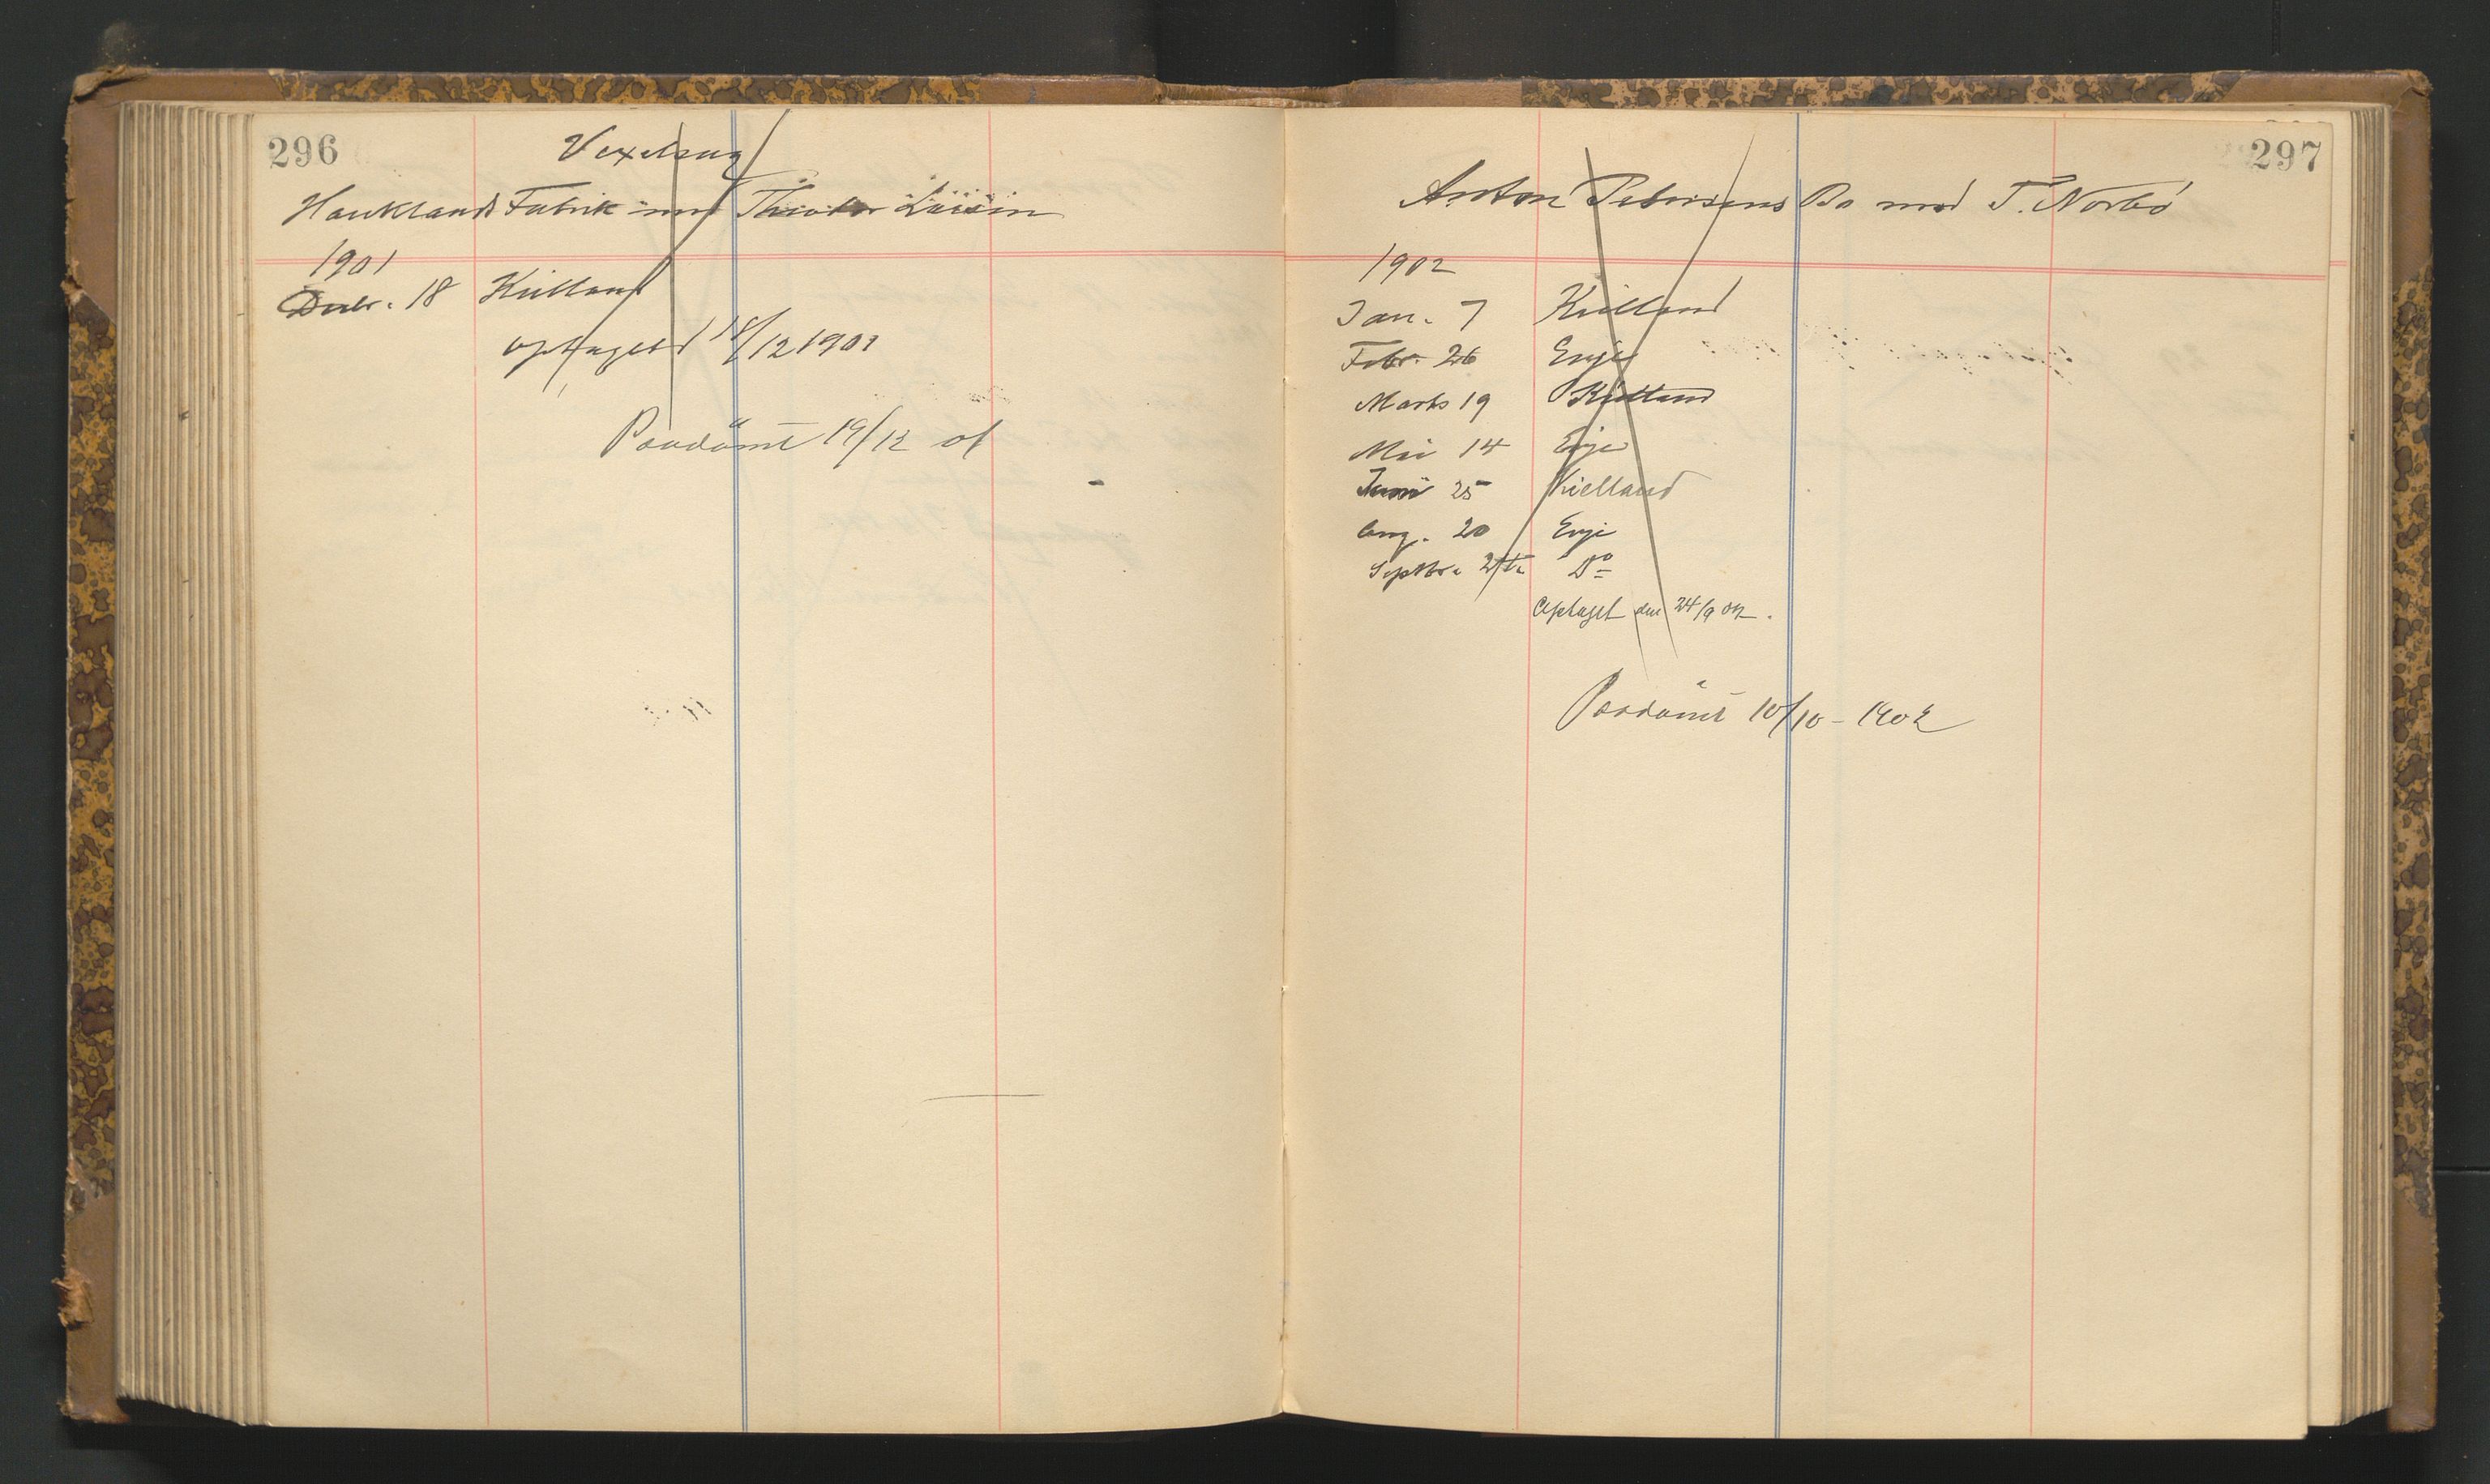 296
Vexelsag
Hauklands Fabrik mod Theodor
1901
Decbr. 18 Kielland
optaget 18/12 1901
Paadømt 19/12 01
297
Anton Petersens Bo mod T. Norbö
1902
Jan. 7 Kielland
Febr. 26 Enje
Marts 19 Kielland
Mai 14 Enje
Juni 25 Kielland
Aug. 20 Enje
Septbr. 24de Do
Optaget den 24/9 02.
Paadømt 10/10 - 1902